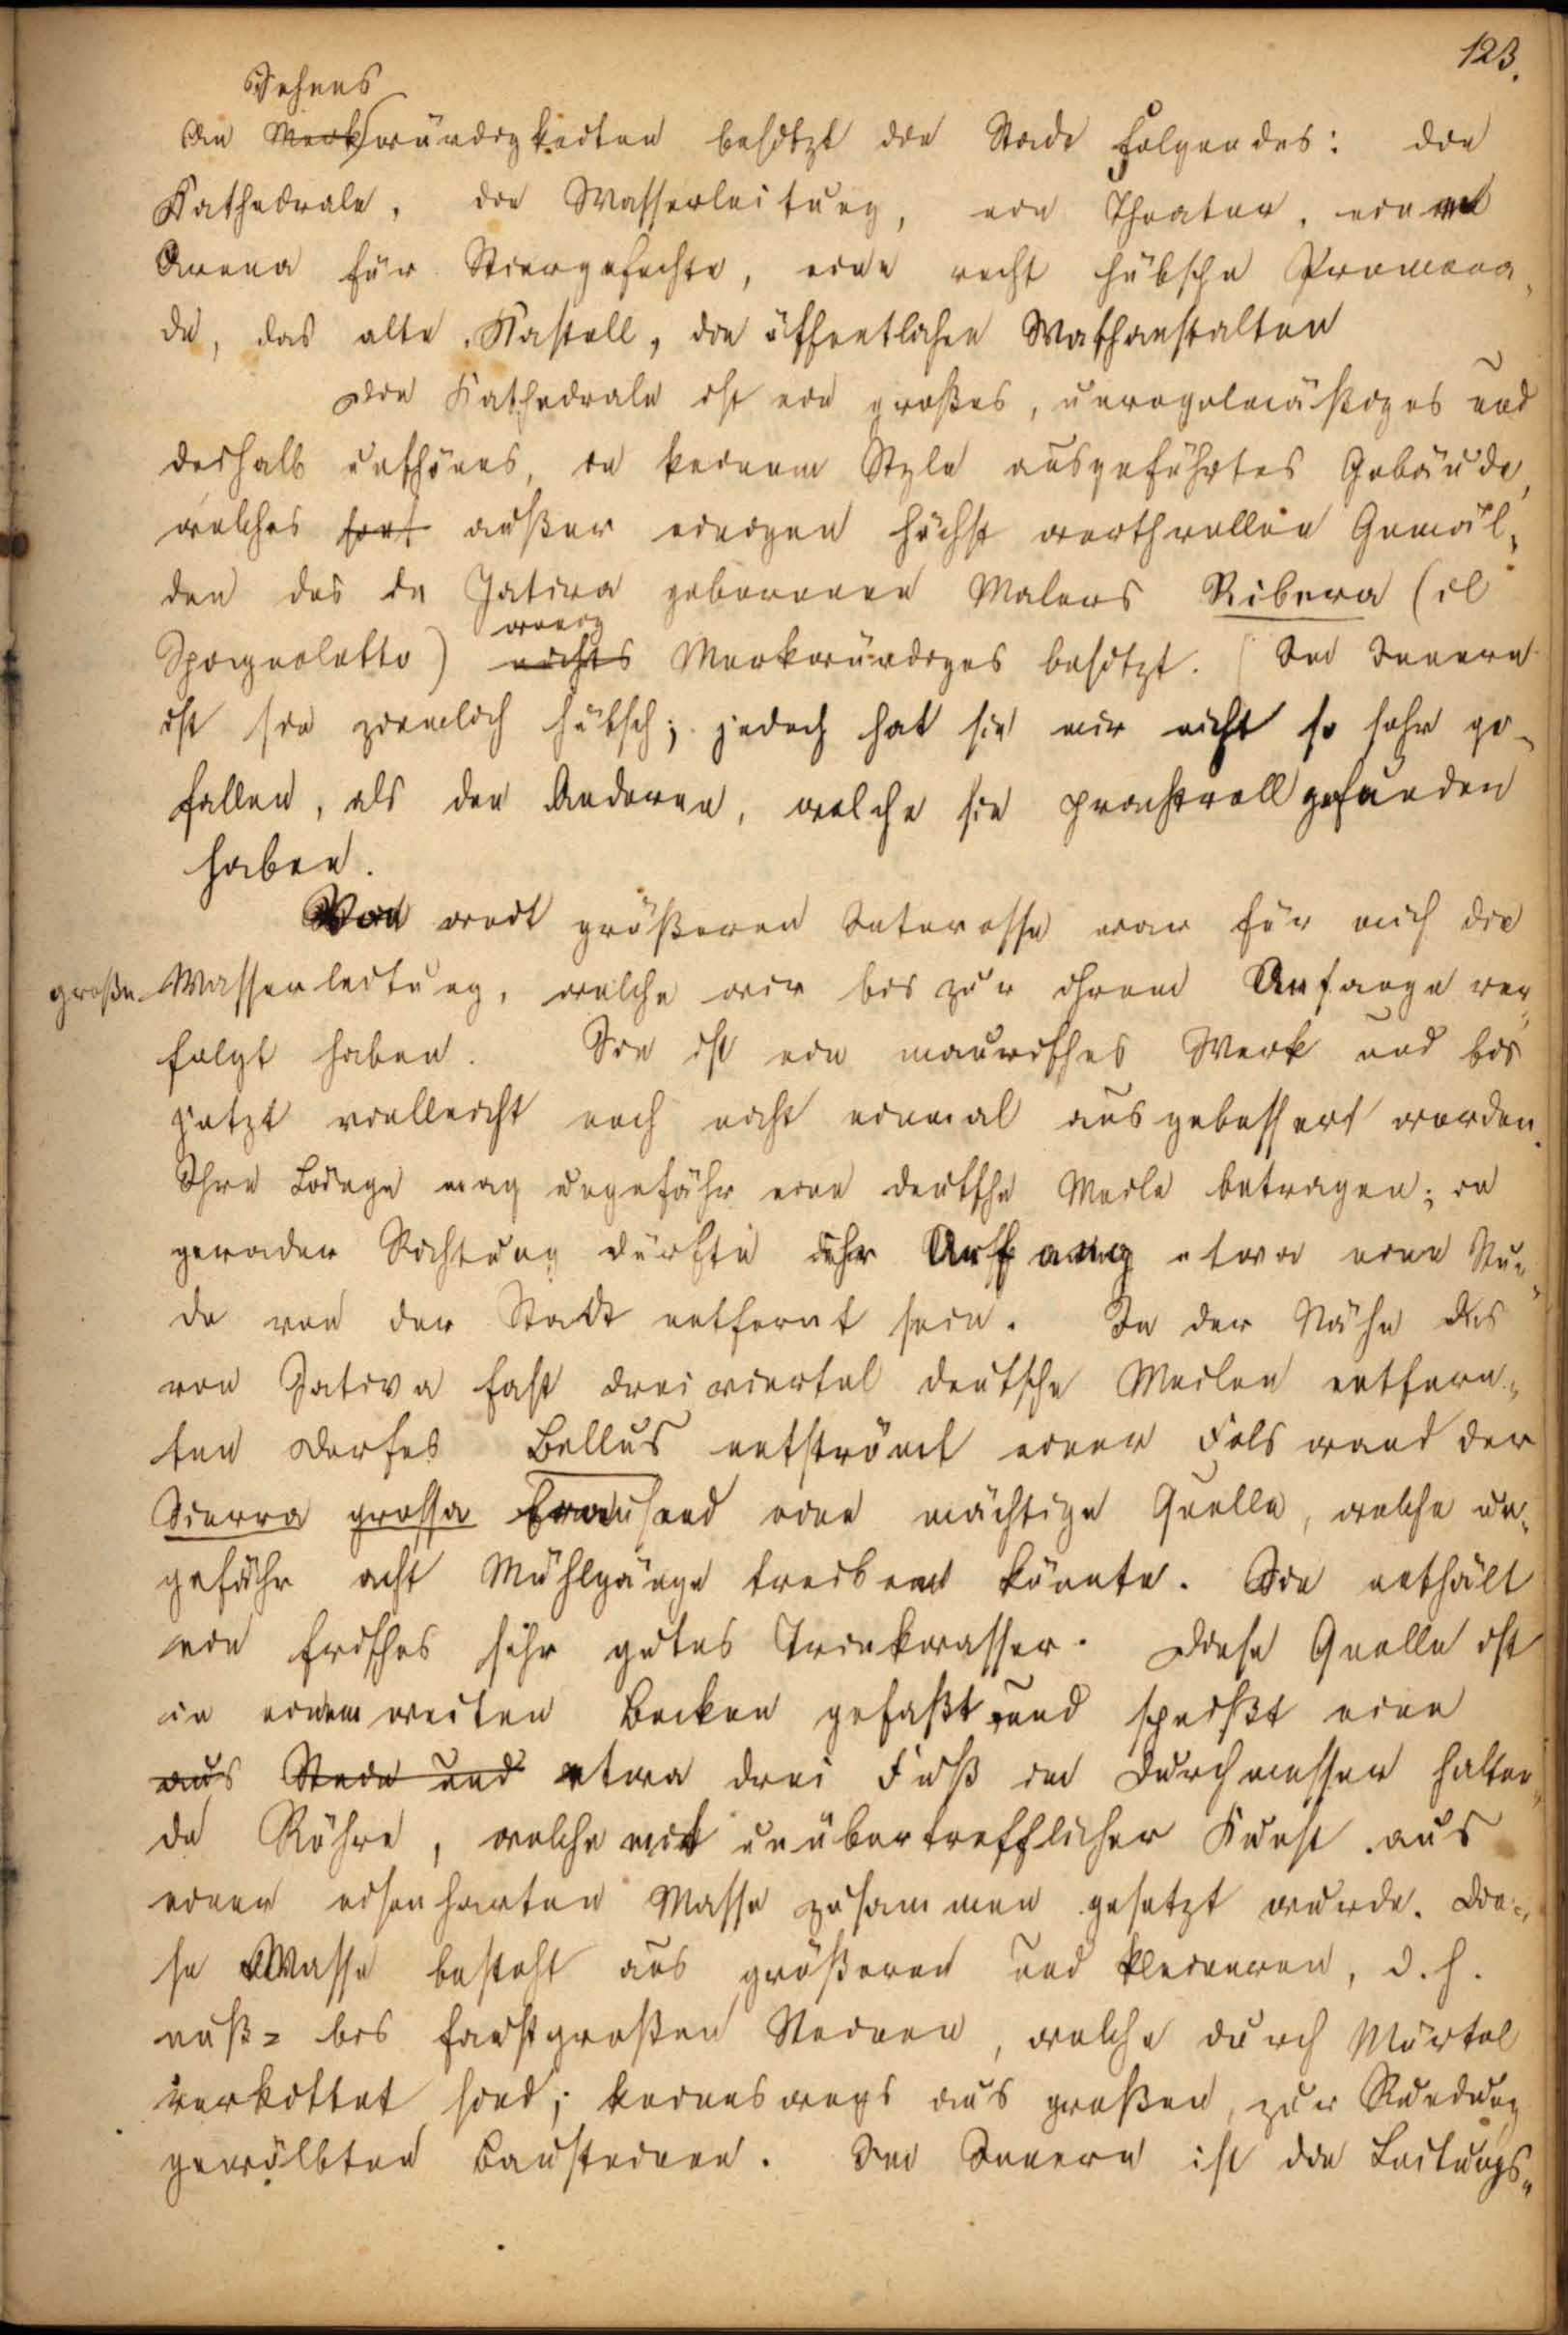 123.
Sehens
An Merkwürdigkeiten besitzt die Stadt folgendes: die
Kathedrale, die Wasserleitung, ein Theater, eine
Arena für Stiergefechte, eine recht hübsche Promena-
de, das alte Kastell, die öffentlichen Waschanstalten
Die Kathedrale ist ein großes, unregelmäßiges und
deshalb unschönes, in keinem Style ausgeführtes Gebäude,
welches fast außer einigen höchst werthvollen Gemäl-
den des in Jativa geborenen Malers Ribera (il
wenig
Spagnoletto) nichts Merkwürdiges besitzt. Im Innern
ist sie ziemlich hübsch; jedoch hat sie mir nicht so sehr ge-
fallen, als den Anderen, welche sie prachtvoll gefunden
haben.
Von weit größeren Interesse war für mich die
große Wasserleitung, welche wir bis zur ihrem Anfange ver-
folgt haben. Sie ist ein maurisches Werk und bis
jetzt vielleicht noch nicht einmal ausgebessert worden.
Ihre Länge mag ungefähr eine deutsche Meile betragen; in
gerader Richtung dürfte ihr Anfang etwa eine Stun-
de von der Stadt entfernt sein. In der Nähe des
von Jativa fast dreiviertel deutsche Meilen entfern-
ten Dorfes Bellus entströmt einer Felswand der
Sierra grossa brausend eine mächtige Quelle, welche un-
gefähr acht Mühlgänge treiben könnte. Sie enthält
ein frisches sehr gutes Trinkwasser. Diese Quelle ist
in einem weiten Becken gefaßt und speißt eine
aus Stein und etwa drei Fuß im Durchmesser halten-
de Röhre, welche mit unübertrefflicher Kunst aus
einer eisenharten Masse zusammen gesetzt wurde. Die-
se Masse besteht aus größeren und kleineren, d. h.
nuß= bis faustgroßen Steinen, welche durch Mörtel
verkittet sind; keineswegs aus großen, zur Rundung
gewölbten Bausteinen. Im Innern ist die Leitungs-